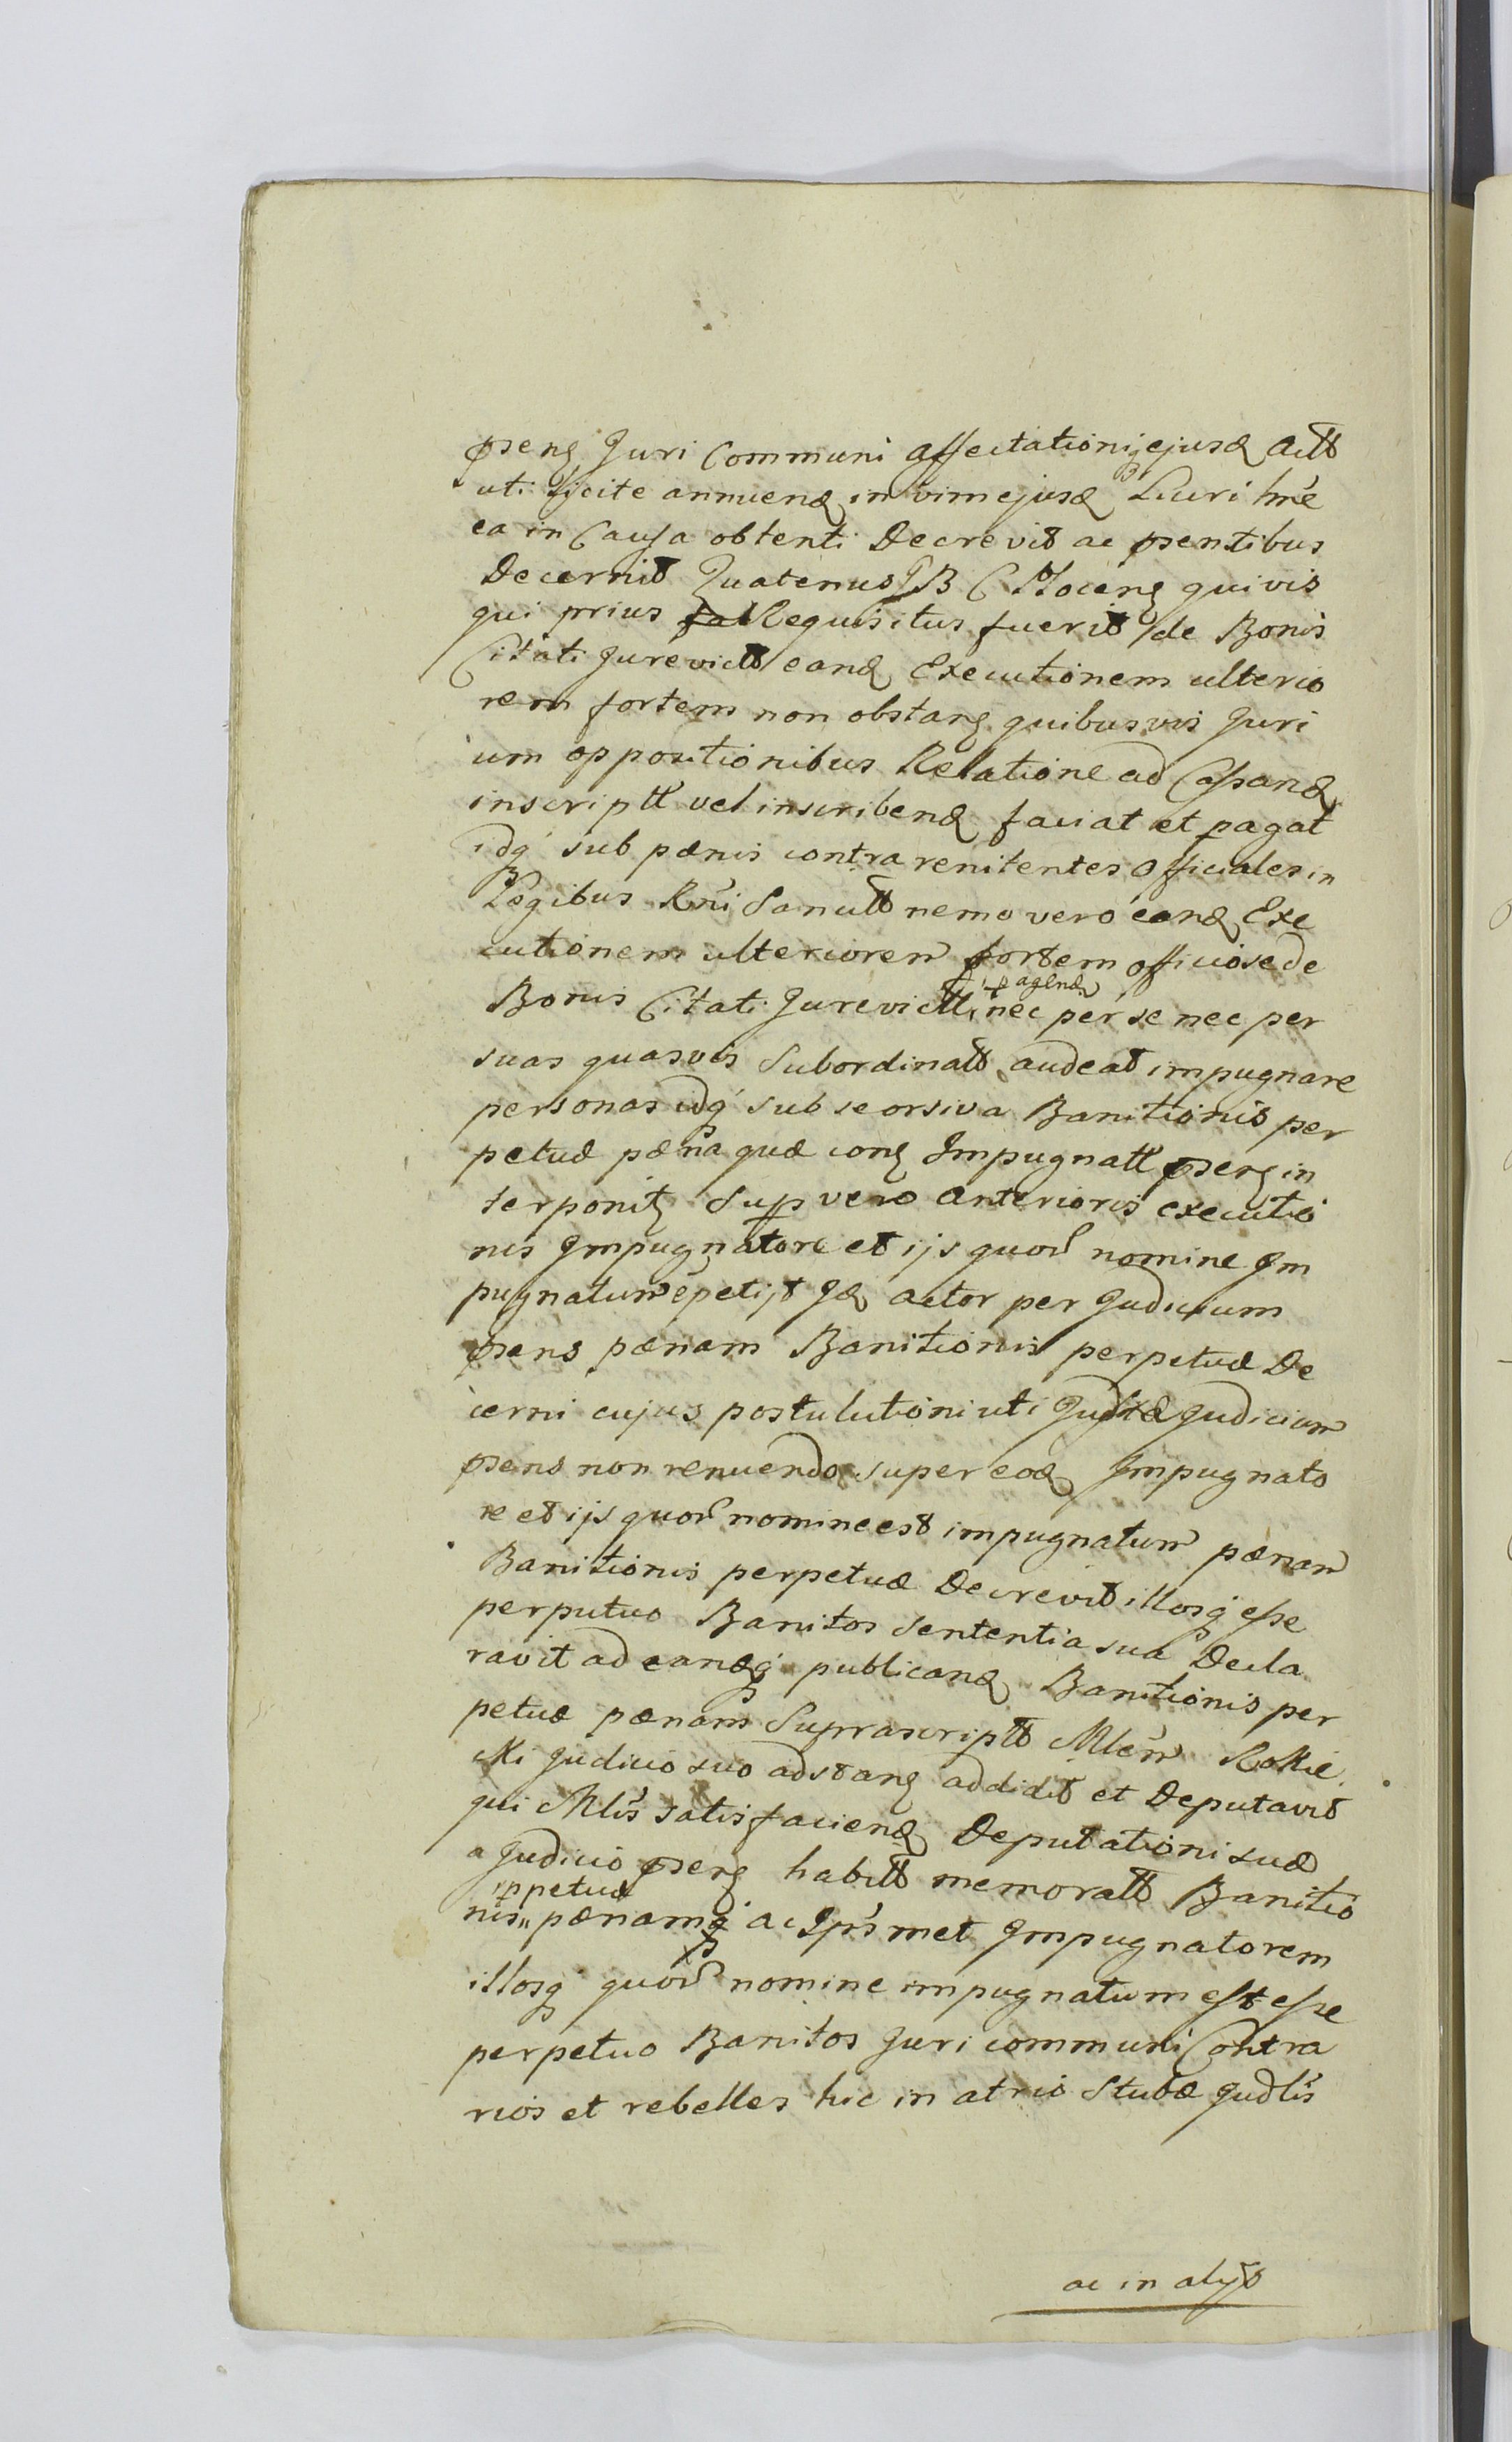 psens Juri Communi affectationiq ejusd Actt
uti licite annuend in vim ejusd Lucri hme
ea in Causa obtenti Decrevit ac psentibus
Decernit Quatenus J B C quivis
qui prius Requisitus fuerit de Bonis
Citati Jurevictt eand Executionem ulterio
rem fortem non obstan quibusvis Juri
um oppositionibus Relatione ad Cassand
inscriptt vel inscribend faciat et pagat
idq sub pænis contra renitentes Officiales in
Legibus Rni Sancitt nemo vero eand Exe
cutionem ulteriorem fortem officiose de
Bonis Citati Jurevictti agend nec per se nec per
suas quasvis Subordinatt audeat impugnare
personas idq sub seorsiva Banitionis per
petuæ pæna quæ con Impugnatt psen in
terponit Sup vero anterioris executio
nis Impugnatore et ijs quor nomine Im
pugnatum e petijt Id actor per Judicium
psens pænam Banitionis perpetuæ De
cerni cujus postulationi uti Justæ Judicium
psens non renuendo super eod Impugnato
re et ijs quor nomine est impugnatum pænam
Banitionis perpetuæ Decrevit illosq esse
perputuo Banitos Sententia sua Decla
ravit ad eandq publicand Banitionis per
petuæ pænam Suprascriptt Mlem Rokic
ki Judicio suo adstan addidit et Deputavit
qui Mlis satisfaciend Deputationi suæ
a Judicio psen habitt memoratt Banitio
nis ppetuæ pænamq ac Ipsmet Impugnatorem
illosq quor nomine impugnatum est esse
perpetuo Banitos Juri communi Contra
rios et rebelles hic in atrio Stubæ Judlis
ac in alijs